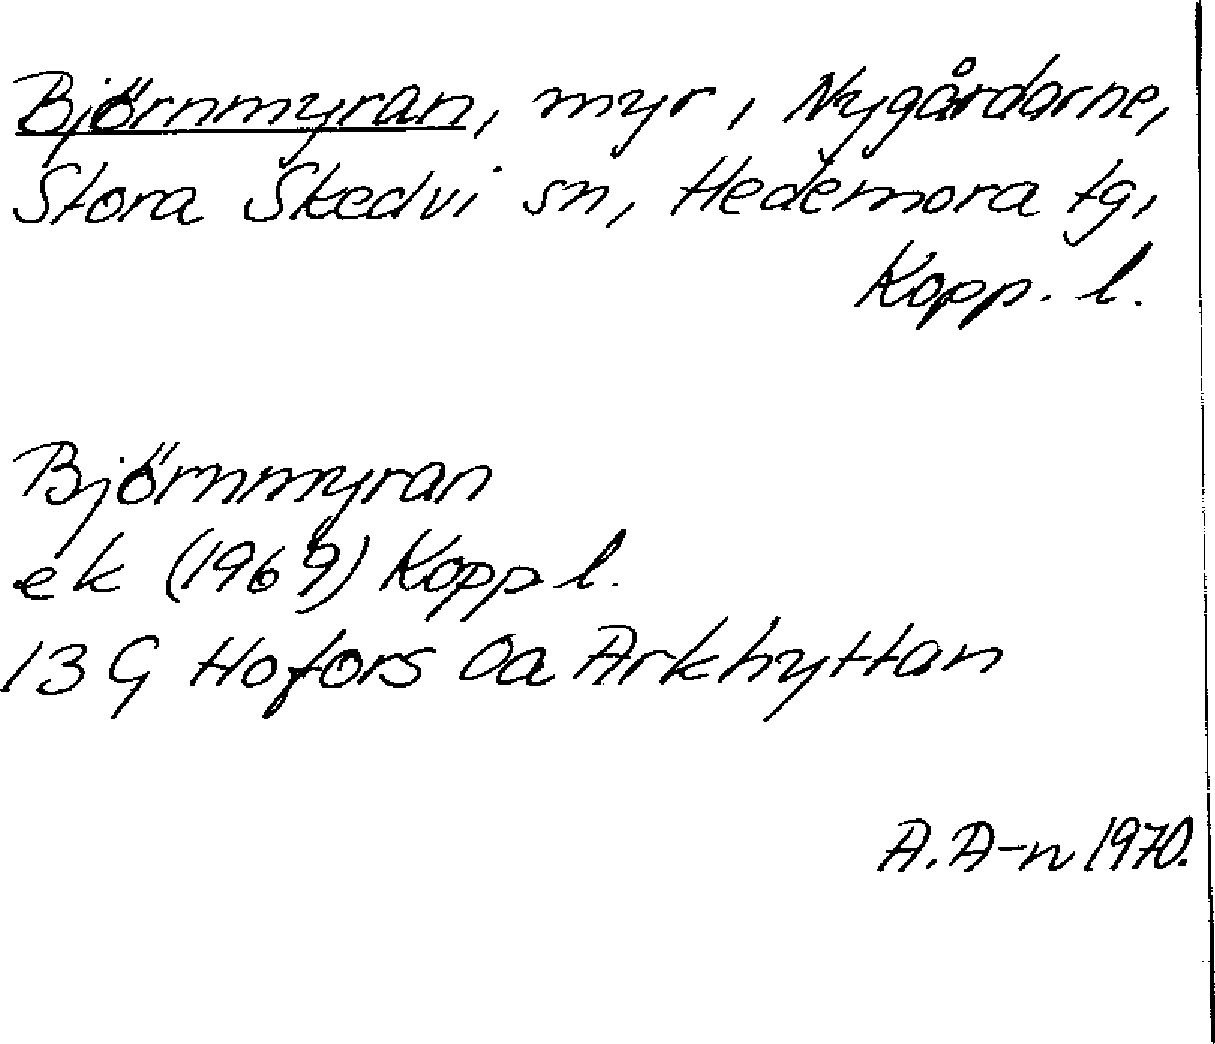 Björnmyran, myr, Nygårdarne,
Stora Skedvi sn, Hedemora tg,
Kopp. l.
Björnmyran
ek (1969) Kopp l.
13 G Hofors 0a Arkhyttan
A. A-n 1970.